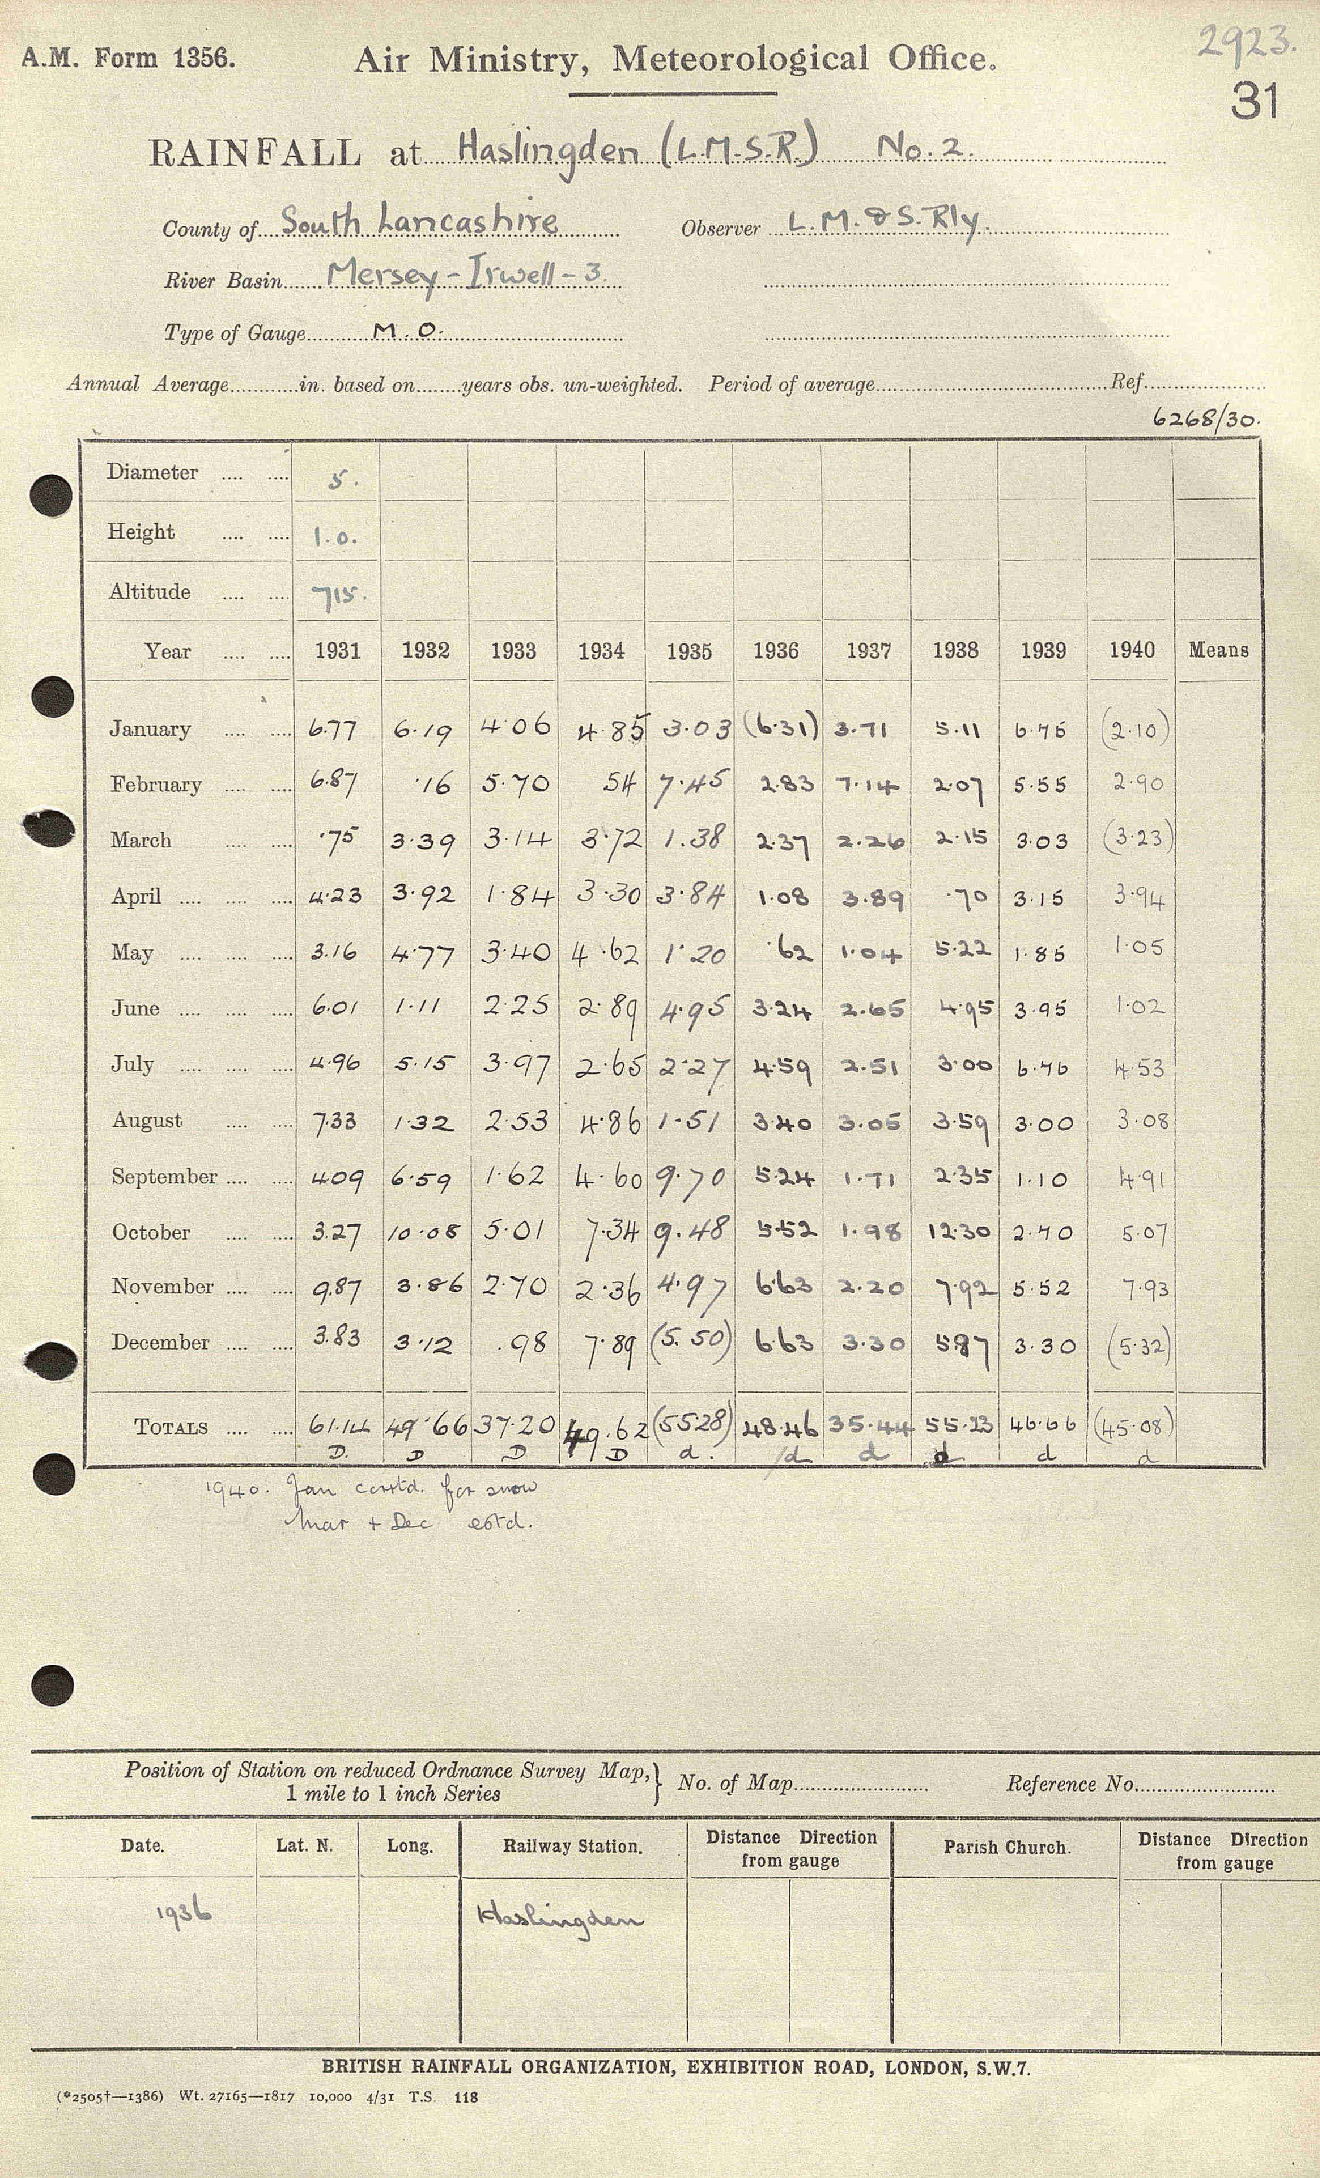 2923.
A.M. Form 1356. Air Ministry, Meteorological Office.
31
RAINFALL at Haslingden (L.M.S.R.) No. 2.
County of South Lancashire Observer L.M. & S. Rly.
River Basin Mersey - Irwell - 3.
Type of Gauge M.O.
Annual Average in. based on years obs. un-weighted. Period of average Ref.
6268/30.
Diameter 5.
Height 1.0.
Altitude 715.
Year 1931 1932 1933 1934 1935 1936 1937 1938 1939 1940 Means
January 6.77 6.19 4.06 4.85 3.03 (6.31) 3.71 5.11 6.75 (2.10)
February 6.87 .16 5.70 54 7.45 2.83 7.14 2.07 5.55 2.90
March .75 3.39 3.14 3.72 1.38 2.37 2.26 2.15 3.03 (3.23)
April 4.23 3.92 1.84 3.30 3.84 1.08 3.89 .70 3.15 3.94
May 3.16 4.77 3.40 4.62 1.20 .62 1.04 5.22 1.85 1.05
June 6.01 1.11 2.25 2.89 4.95 3.24 2.65 4.95 3.95 1.02
July 4.96 5.15 3.97 2.65 2.27 4.59 2.51 3.00 6.76 4.53
August 7.33 1.32 2.53 4.86 1.51 3.40 3.05 3.59 3.00 3.08
September 4.09 6.59 1.62 4.60 9.70 5.24 1.71 2.35 1.10 4.91
October 3.27 10.08 5.01 7.34 9.48 5.52 1.98 12.30 2.70 5.07
November 9.87 3.86 2.70 2.36 4.97 6.63 2.20 7.92 5.52 7.93
December 3.83 3.12 .98 7.89 (5.50) 6.63 3.30 5.87 3.30 (5.32)
TOTALS 61.14 49.66 37.20 49.62 (55.28) 48.46 35.44 55.23 46.66 (45.08)
D. D D D d. d d d d d
1940. Jan corrtd. for snow
Mar + Dec estd.
Position of Station on reduced Ordnance Survey Map, } No. of Map Reference No.
1 mile to 1 inch Series
Date. Lat. N. Long. Railway Station. Distance Direction from gauge Parish Church. Distance Direction from gauge
1936 Haslingden
BRITISH RAINFALL ORGANIZATION, EXHIBITION ROAD, LONDON, S.W.7.
(*2505†—1386) Wt. 27165—1817 10,000 4/31 T.S. 118